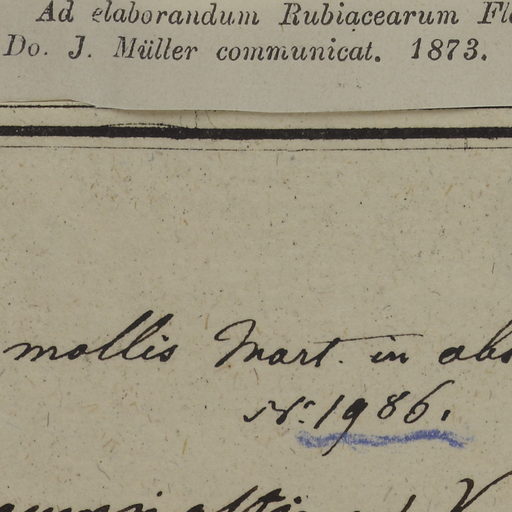 Ad elaborandum Rubiacearum Fl
Do. J. Müller communicat. 1873.
mollis Mart. in obs
No. 1986.